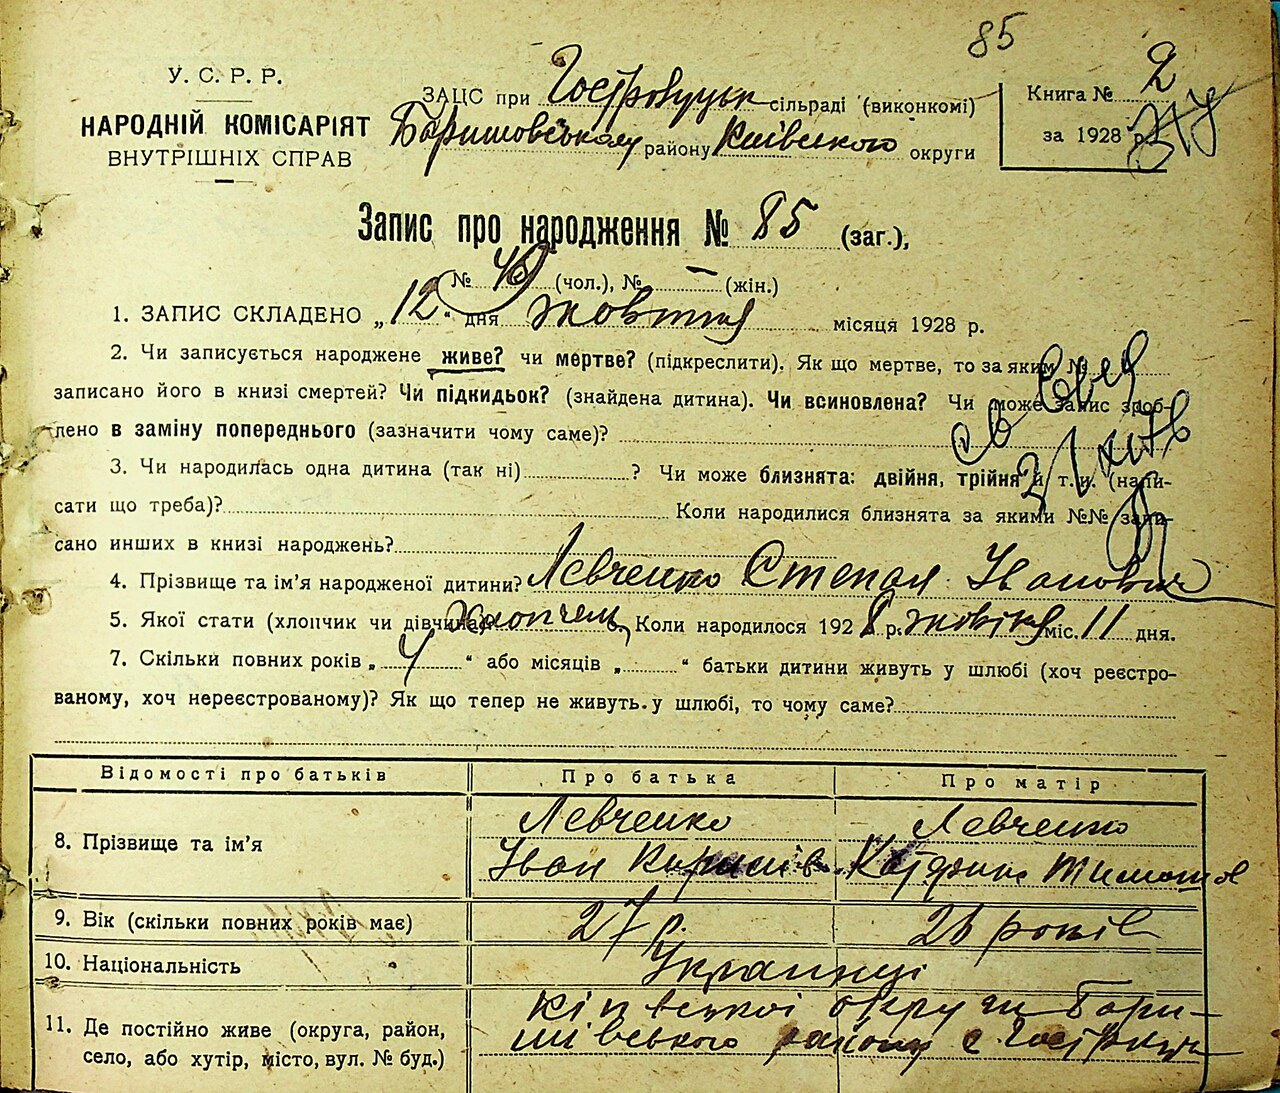 85
У. С. Р. Р.
НАРОДНІЙ КОМІСАРІЯТ
ВНУТРІШНІХ СПРАВ
ЗАЦС при Гостролуцьк сільраді (виконкомі)
Баришовському району Київського округи
Книга № 2
за 1928 р.
Запис про народження № 85 (заг.),
№ (чол.), № – (жін.)
1. ЗАПИС СКЛАДЕНО „12“ дня жовтня місяця 1928 р.
2. Чи записується народжене живе? чи мертве? (підкреслити). Як що мертве, то за яким №
записано його в книзі смертей? Чи підкидьок? (знайдена дитина). Чи всиновлена? Чи може запис зроб-
лено в заміну попереднього (зазначити чому саме)?
3. Чи народилась одна дитина (так ні) ? Чи може близнята: двійня, трійня й т. и. (напи-
сати що треба)? Коли народилися близнята за якими №№ запи-
сано инших в книзі народжень?
4. Прізвище та ім'я народженої дитини? Левченко Степан Іванович
5. Якої стати (хлопчик чи дівчина) хлопчик 6. Коли народилося 1928 р. жовтня міс. 11 дня.
7. Скільки повних років „4“ або місяців „ “ батьки дитини живуть у шлюбі (хоч реєстро-
ваному, хоч нереєстрованому)? Як що тепер не живуть у шлюбі, то чому саме?
Відомості про батьків Про батька Про матір
8. Прізвище та ім'я Левченко Левченко
Іван
9. Вік (скільки повних років має) 27 р. 26 років
10. Національність Українці
11. Де постійно живе (округа, район, Київської округи Бари-
село, або хутір, місто, вул. № буд.) шівського району с.